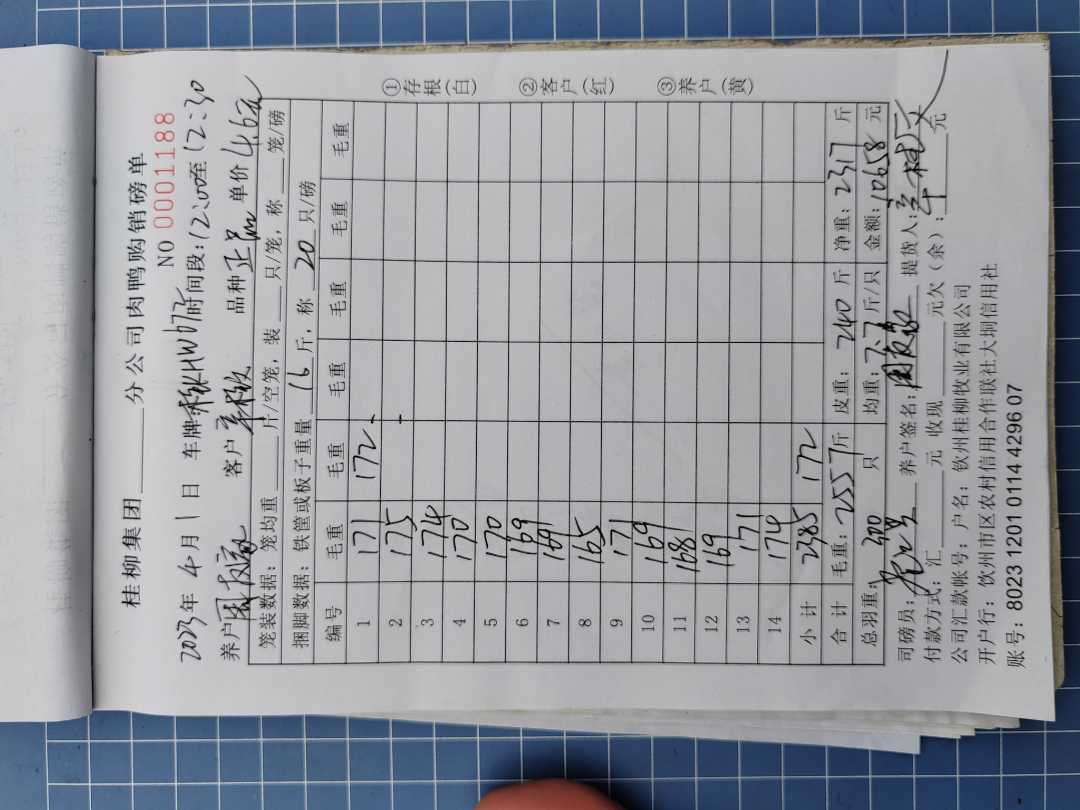 桂柳集团______分公司肉鸭购销磅单
NO 0001188
2023年4月1日 车牌 时间段:12:00至12:30
养户 客户 品种正品 单价4.6元
笼装数据:笼均重____斤/空笼,装____只/笼,称____笼/磅
捆脚数据:铁筐或板子重量16斤,称20只/磅
编号 毛重 毛重 毛重 毛重 毛重 毛重
1 171 172
2 175
3 174
4 170
5 170
6 169
7 169
8 165
9 171
10 169
11 168
12 169
13 171
14 174
小计 2385 172
合计 毛重:2557斤 皮重:240斤 净重:2317斤
总羽重:300只 均重:7.7斤/只 金额:10658元
司磅员: 养户签名: 提货人:
付款方式:汇____元 收现____元欠(余):____元
公司汇款帐号:户名:钦州桂柳牧业有限公司
开户行:钦州市区农村信用合作联社大垌信用社
账号:8023 1201 0114 4296 07
①存根(白) ②客户(红) ③养户(黄)